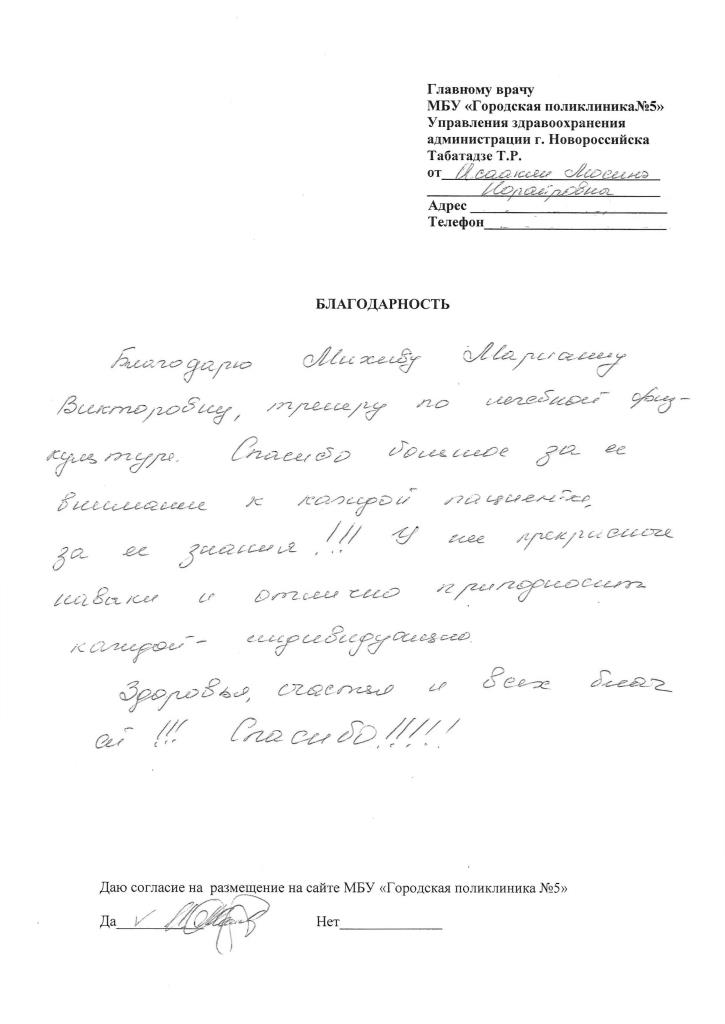 Главному врачу
МБУ «Городская поликлиника№5»
Управления здравоохранения
администрации г. Новороссийска
Табатадзе Т.Р.
от Исаакян Лосинэ
Норайровна
Адрес
Телефон
БЛАГОДАРНОСТЬ
Благодарю Марианну
Викторовну, тренеру по лечебной физ-
культуре. Спасибо большое за ее
внимание к каждой пациентке,
за ее знания!!! У нее прекрасные
наваки и отлично приподносит
каждой - индивидуально.
Здоровья, счастья и всех благ
ей!!! Спасибо!!!!!
Даю согласие на размещение на сайте МБУ «Городская поликлиника №5»
Да Нет